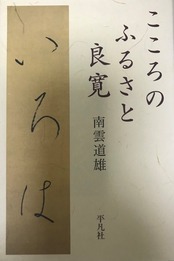 こころの
ふるさと
良寛
南雲道雄
平凡社
いろは